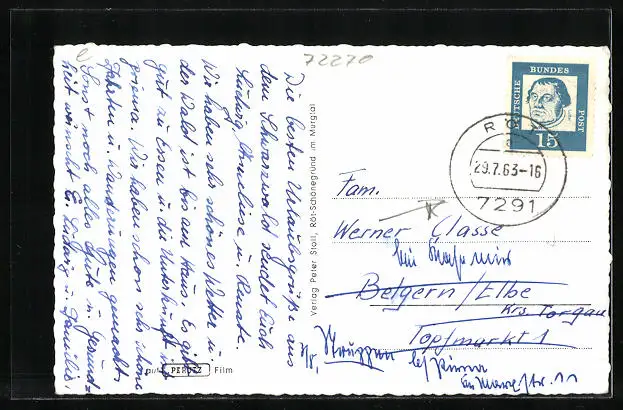 72270
Die besten Urlaubsgrüße aus
dem Schwarzwald sendet Euch
Ludwig, Anneliese u. Renate.
Wir haben sehr schönes Wetter u.
der Wald ist bis am Haus. Es gibt
gut zu Essen u. die Unterkunft ist
prima. Wir haben schon sehr schöne
Fahrten u. Wanderungen gemacht.
Sonst noch alles Gute u. Gesund-
heit wünscht E. Ludwig u. Familie.
Verlag Peter Stoll, Röt-Schönegrund im Murgtal
auf PERUTZ Film
DEUTSCHE BUNDESPOST
15
RÖT
a
29.7.63-16
7291
Fam.
Werner Classe
bei
Belgern/Elbe
Krs. Torgau
Topfmarkt 1
Struppen b/Pirna